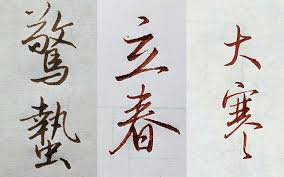 大寒
立春
驚蟄